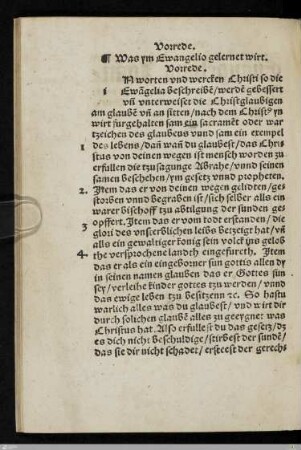 Vorrede.
¶ Was ym Ewangelio gelernet wirt.
Vorrede.
IN worten vnd wercken Christi so die
Ewāgelia beschreibē/ werdē gebessert
vñ unterweiset die Christglaubigen
am glaubē vñ an sitten/ nach dem Christꝰ yn
wirt furgehalten sam ein sacramēt oder war
tzeichen des glaubens vnnd sam ein exempel
1 des lebens/ dañ wañ du glaubest/ das Chri
stus von deinen wegen ist mensch worden zu
erfullen die tzusagunge Abrahe/ vnnd seinen
samen beschehen/ ym gesetz vnnd propheten.
2. Item das er von deinen wegen geliden/ ge
storben vnnd begraben ist/ sich selber als ein
warer bischoff tzu abtilgung der sunden ge
3 opffert. Item das er vom todt erstanden/ die
glori des vnsterblichen leibs bertzeigt hat/ vñ
als ein gewaltiger kónig sein volck yns gelob
4 the versprochene landth eingefureth. Item
das er als ein eingeborner sun gottis allen dy
in seinen namen glauben das er Gottes sun
sey/ verliehe kinder gottes tzu werden/ vnnd
das ewige leben tzu besitzenn ⁊c. So hastu
warlich alles was du glaubest/ vnd wirt dir
durch solichen glaubē alles zu geeygnt was
Christus hat. Also erfullestu das gesetz/ dz
es dich nicht beschuldige/ stirbest der sundē/
das sie dir nicht schadet/ ersteest der gerech-